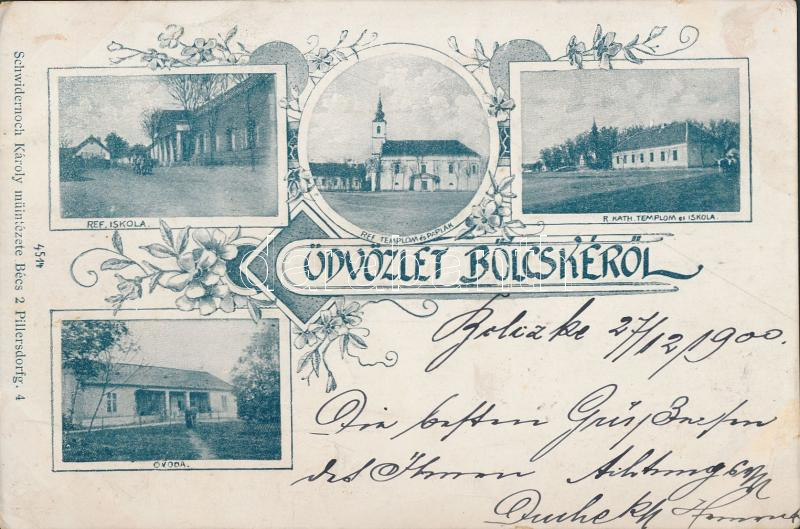 REF. ISKOLA.
REF. TEMPLOM és PAPLAK
R. KATH. TEMPLOM és ISKOLA.
ÜDVÖZLET BÖLCSKÉRŐL
ÓVODA.
Schwidernoch Károly műintézete Bécs 2 Pillersdorfg. 4
4514
27/12 1900.
Die besten Grüße
des Ihnen Achtungsv